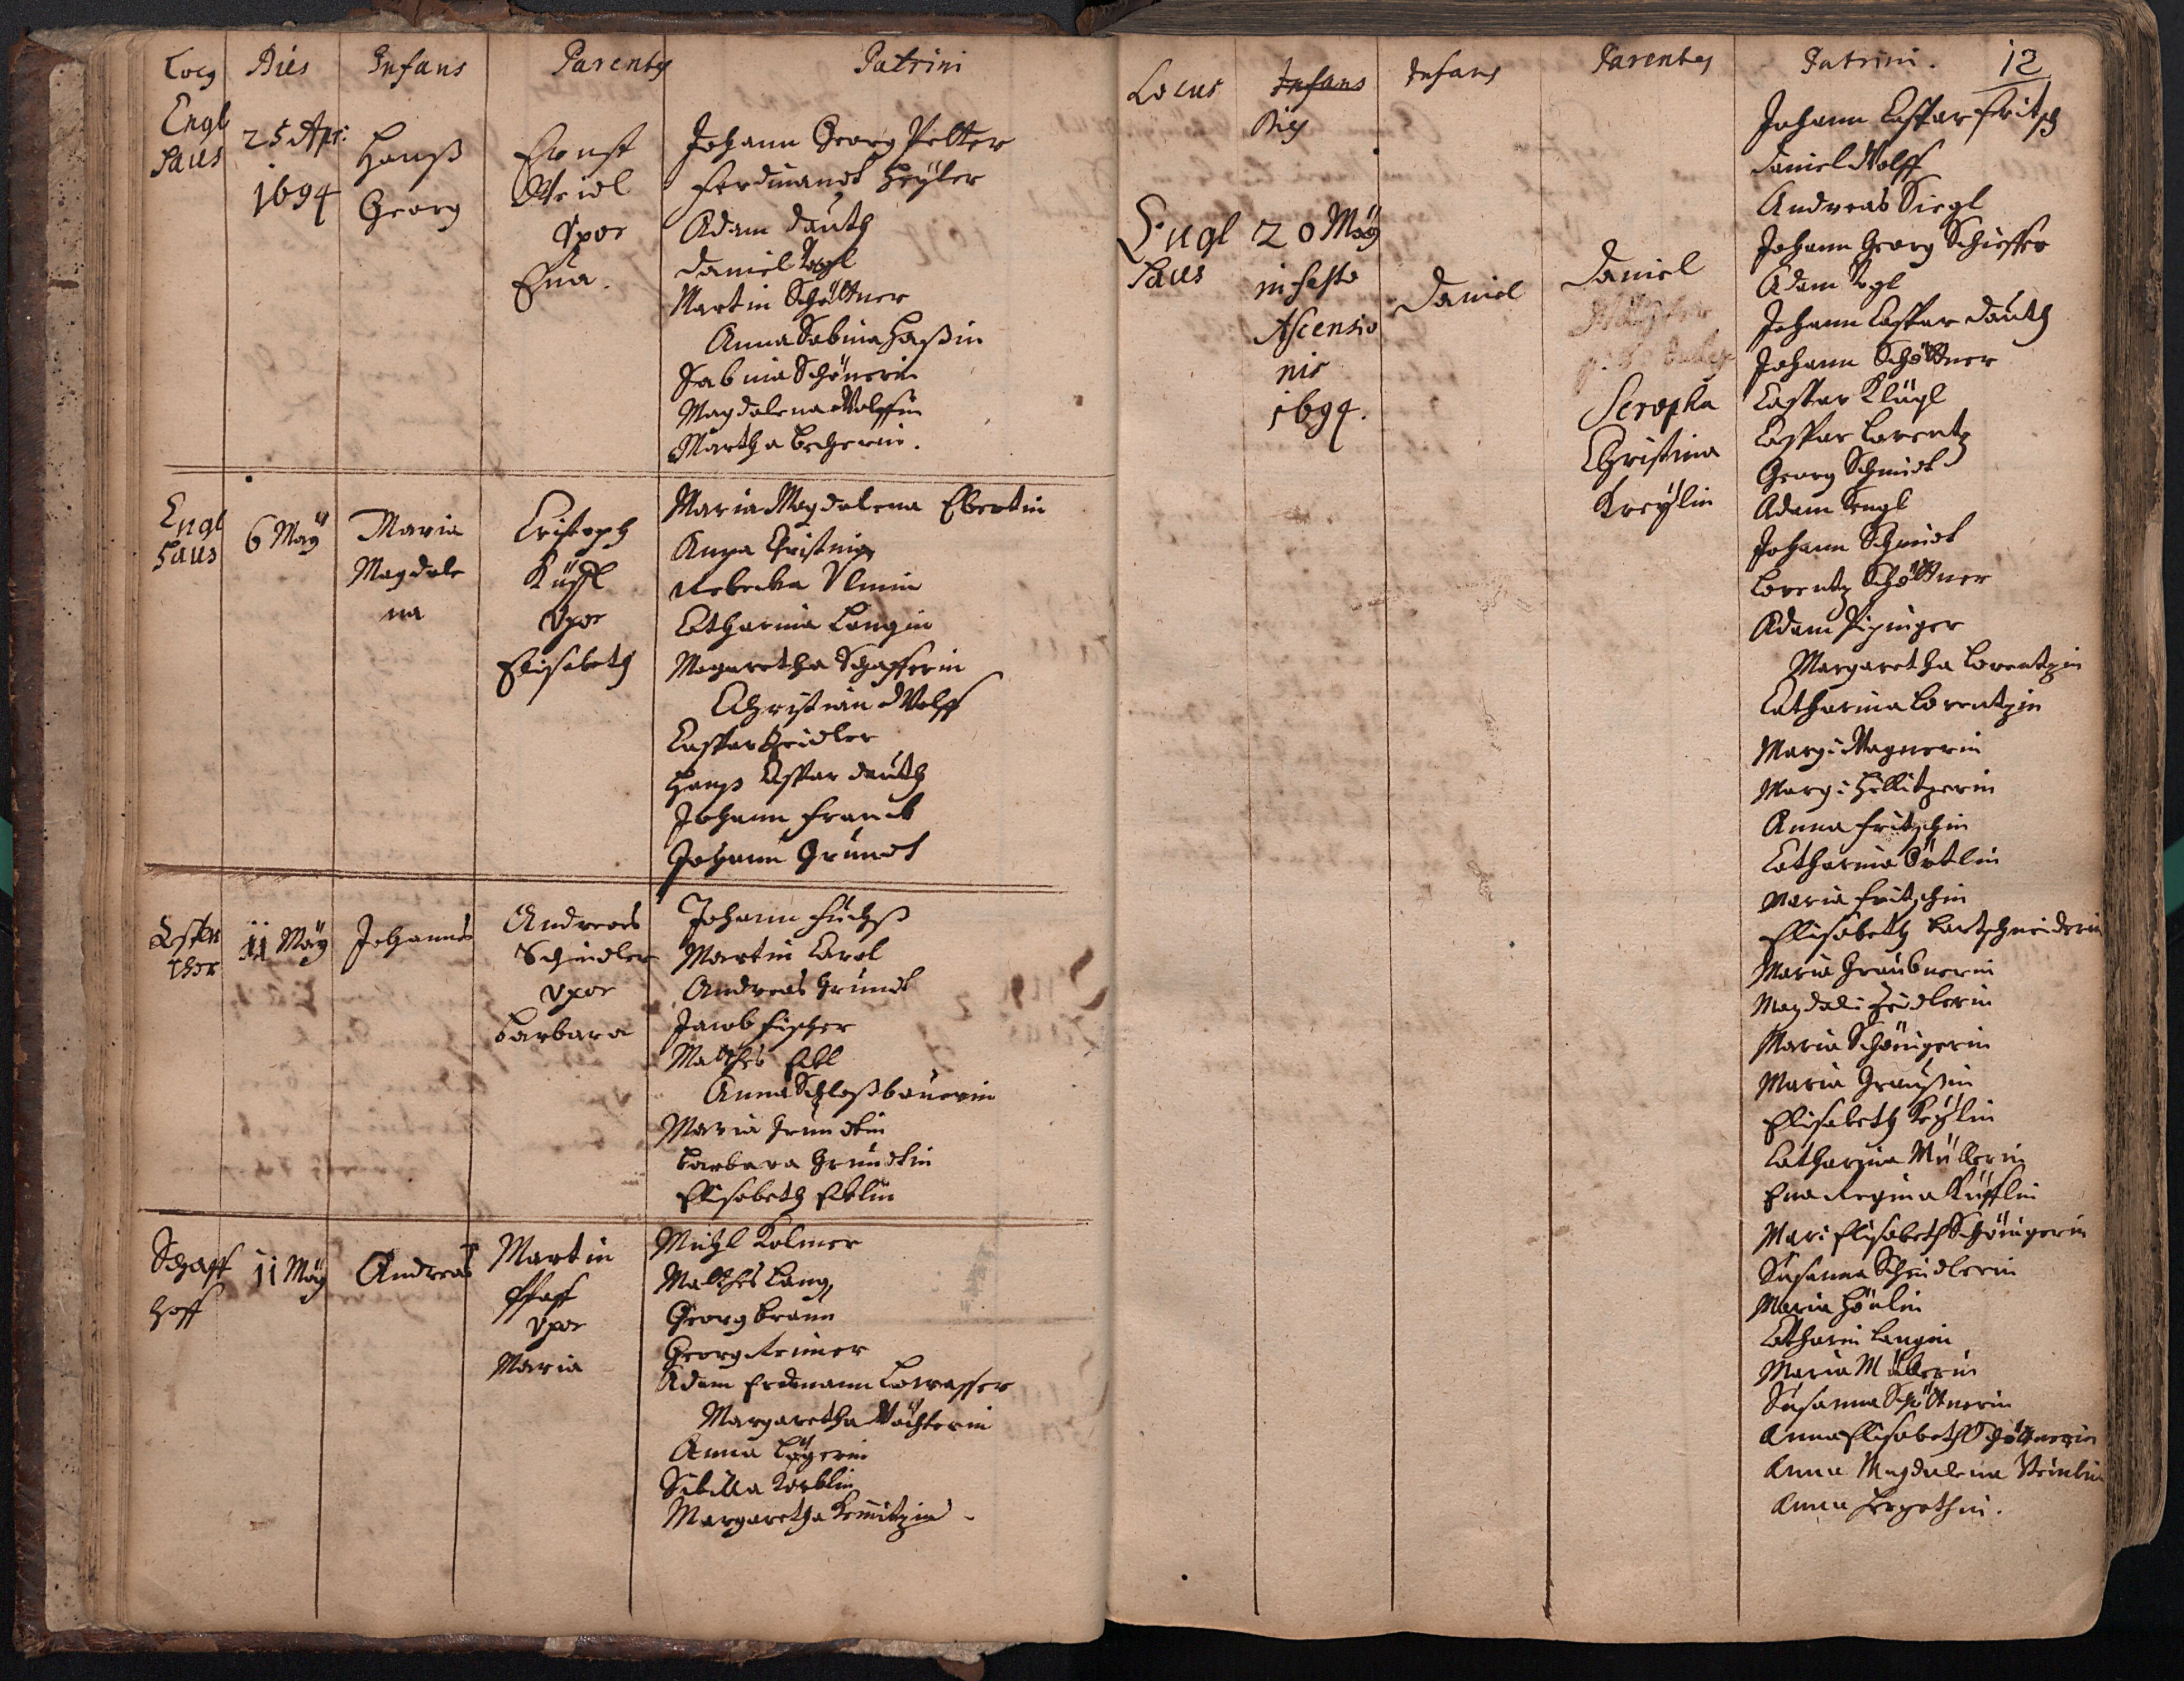 Locg Dies Infans Parentes Patrini
Engl
Haus
25 Apr:
1694
Hanß
Georg
Ernst
Weidl
Vxor
Eva.
Johann Georg Petter
Ferdinandt Heyler
Adam Dauth
Daniel Vogl
Martin Schöttner
Anna Sabina Haßin
Sabina Schönerin
Magdalena Wolffin
Martha Becherin.
Engl
Haus
6 Maÿ
Maria
Magdale
na
Cristoph
Küffl
Vxor
Elisabeth
Maria Magdalena Ebertin
Anna Christina
Rebecka Ulmin
Catharina Langin
Magaretha Schafferin
Christian Wolff
Caspar Zeidler
Hanß Caspar Dauth
Johann Franck
Johann Grundt
11 Maÿ
Johannes
Andreas
Schindler
Vxor
Barbara
Johann Fuchß
Martin Carol
Andreas Grundt
Jacob Fischer
Matthes Ebl
Anna Schloßbauerin
Maria Grundtin
Barbara Grundtin
Elisabeth Eblin
Schaff
hoff
11 Maÿ
Andreas
Martin
Pfaff
Vxor
Maria
Michl Kolmer
Matthes Lang
Georg Braun
Georg Reimer
Adam Erdmann
Margaretha Wächterin
Anna
Sibilla Korblin
Margaretha
Locus Infans Infans Parentes Patrini. 12
Dies
Engl
Haus
20 Maÿ
in festo
Ascensio
nis
1694.
Daniel
Daniel
Serapha
Christina
Kreÿlin
Johann Caspar Fritsch
Daniel Wolff
Andreas Siegl
Johann Georg Schieffer
Adam Vogl
Johann Caspar Dauth
Johann Schöttner
Caspar Klügl
Caspar Lorentz
Georg Schmidt
Adam Engl
Johann Schmidt
Lorentz Schöttner
Adam Pipinger
Margaretha Lorentzin
Catharina Lorentzin
Marg: Wagnerin
Marg: Hillitzerin
Anna Fritschin
Catharina Örtlin
Maria Fritschin
Elisabeth Bartschneiderin
Maria Graubnerin
Magdal: Zeidlerin
Maria Schönigerin
Maria Graußin
Elisabeth Keÿlin
Catharina Müllerin
Eva Regina Küfflin
Mari Elisabeth Schönigerin
Susanna Schindlerin
Maria
Catharin Langin
Maria Müllerin
Susanna Schöttnerin
Anna Elisabeth Schöttnerin
Anna Magdalena
Anna